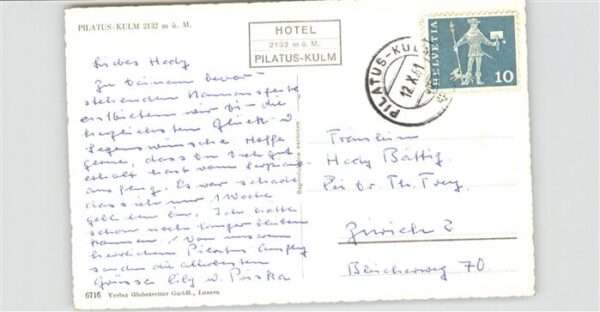 PILATUS-KULM 2132 m ü. M.
HOTEL
2132 m ü. M.
PILATUS-KULM
PILATUS-KULM
12.X.61
HELVETIA
10
Liebes Hedy
Zu Deinem bevor-
stehenden Namensfeste
entbieten wir Dir die
herzlichsten Glück- u
Segenswünsche. Hoffe
gerne, dass Du Dich gut
erholt hast vom
. Es war schade
dass ich nur 1 Woche
Ich hätte
schon noch länger bleiben
können! Von unserem
herrlichen Pilatus Ausflug
senden die allerbesten
Grüsse Lily u. Priska
Fräulein
Hedy Bättig
bei Dr. Th. Frey
Zürich 2
Bleicherweg 70
6716 Verlag Globetrotter GmbH., Luzern